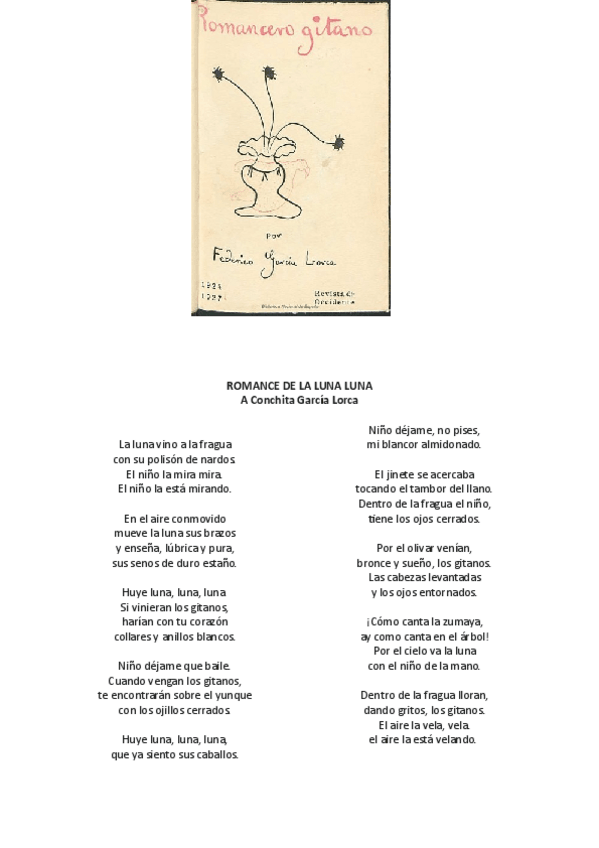 Romancero gitano
por
Federico García Lorca
1924
1927
Revista de
Occidente
ROMANCE DE LA LUNA LUNA
A Conchita García Lorca
La luna vino a la fragua
con su polisón de nardos.
El niño la mira mira.
El niño la está mirando.
En el aire conmovido
mueve la luna sus brazos
y enseña, lúbrica y pura,
sus senos de duro estaño.
Huye luna, luna, luna
Si vinieran los gitanos,
harían con tu corazón
collares y anillos blancos.
Niño déjame que baile.
Cuando vengan los gitanos,
te encontrarán sobre el yunque
con los ojillos cerrados.
Huye luna, luna, luna,
que ya siento sus caballos.
Niño déjame, no pises,
mi blancor almidonado.
El jinete se acercaba
tocando el tambor del llano.
Dentro de la fragua el niño,
tiene los ojos cerrados.
Por el olivar venían,
bronce y sueño, los gitanos.
Las cabezas levantadas
y los ojos entornados.
¡Cómo canta la zumaya,
ay como canta en el árbol!
Por el cielo va la luna
con el niño de la mano.
Dentro de la fragua lloran,
dando gritos, los gitanos.
El aire la vela, vela.
el aire la está velando.